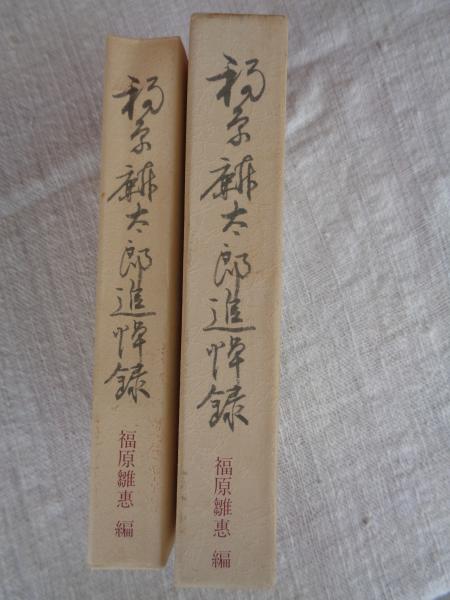 福原麟太郎追悼録
福原雛恵 編
福原麟太郎追悼録
福原雛恵 編